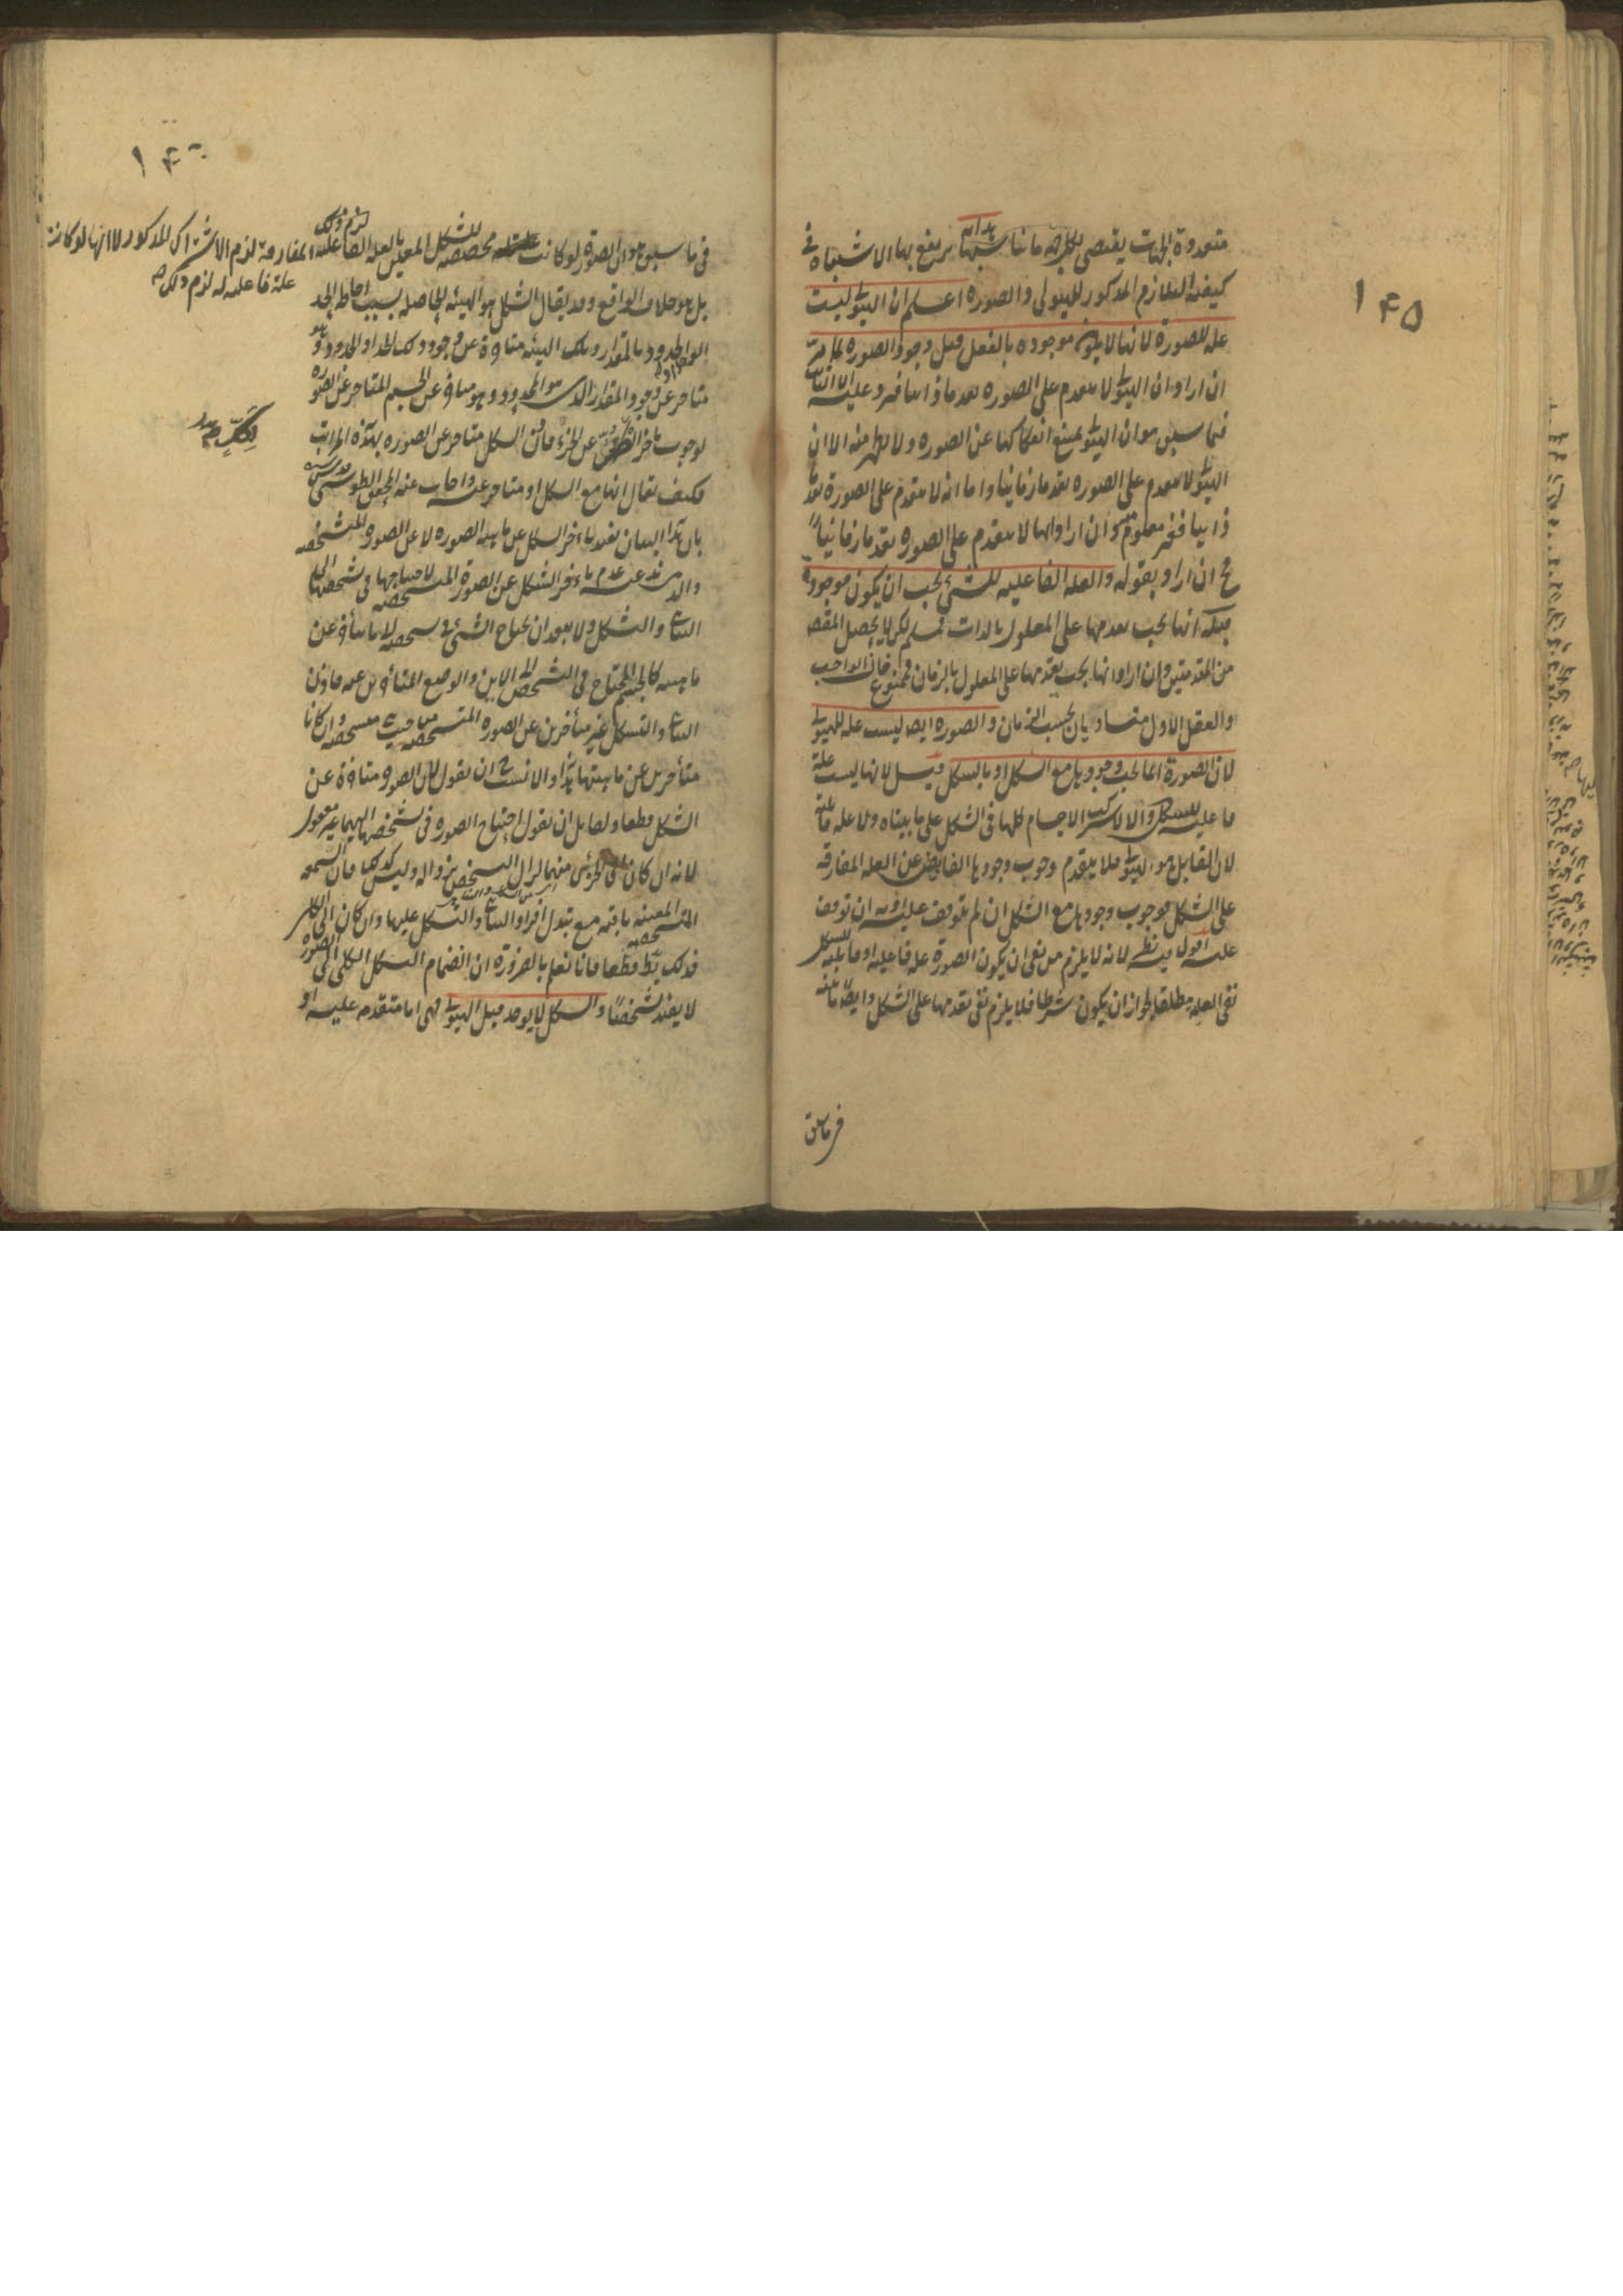 ١٤٥
متعددة الجهات يقتضى بكل جهة ما يناسبها هداية يرتفع بها الاشتباه فى
كيفية التلازم المذكور للهيولى والصورة اعلم ان الهيولى ليست
علة للصورة لانها لا يكون موجودة بالفعل قبل وجود الصورة لما مر
ان اراد ان الهيولى لا يتقدم على الصورة تقدما ذاتيا فيرد عليه ان الثابت
فيما سبق هو ان الهيولى يمتنع انفكاكها عن الصورة ولا يظهر منه الا ان
الهيولى لا يتقدم على الصورة تقدما زمانيا واما انه لا يتقدم على الصورة تقدما
ذاتيا فغير معلوم منه وان اراد انها لا يتقدم على الصورة تقدما زمانيا
ح ان اراد بقوله والعلة الفاعلية للشئ يجب ان يكون موجودة
قبله انها يجب تقدمها على المعلول بالذات فمسلم لكن لا يحصل المقصد
من المقدمتين وان اراد انها يجب تقدمها على المعلول بالزمان فممنوع فان الواجب
والعقل الاول متساويان بحسب الزمان والصورة ايضا ليست علة للهيولى
لان الصورة انما يجب وجودها مع الشكل او بالشكل قيل لانها ليست علة
فاعلية للشكل والا لاشتركت الاجسام كلها فى الشكل على ما بيناه ولا علة قابلة
لان القابل هو الهيولى فلا يتقدم وجوب وجودها الفايض عن العلة المفارقة
على الشكل فوجوب وجودها مع الشكل ان لم يتوقف عليه او به ان توقف
عليه اقول فيه نظر لانه لا يلزم من نفى ان يكون الصورة علة فاعلية او قابلة للشكل
نفى العلية مطلقا لجواز ان يكون شرطا فلا يلزم نفى تقدمها على الشكل وايضا ما بينه
فى ما سبق هو ان الصورة لو كانت مخصصة للشكل المعين بالعلة الفاعلية لزم ذلك
المفارقة لزم الاشتراك المذكور لا انها لو كانت
علة فاعلية له لزم ذلك صح
بل هو خلاف الواقع وقد يقال الشكل هو الهيئة الحاصلة بسبب احاطة الحد
الواحد او الحدود بالمقدار وتلك الهيئة متاخرة عن وجود ذلك الحد او الحدود وهو
متاخر عن وجود المقدار الذى هو المحدود وهو متاخر عن الجسم المتاخر عن الصورة
لوجوب تاخر الكل عن الجزء فاذن الشكل متاخر عن الصورة بهذه المراتب
فكيف يقال انها مع الشكل او متاخر عنه واجاب عنه المحقق الطوسى
بان هذا البيان يفيد تاخر الشكل عن ماهية الصورة لا عن الصورة المتشخصة
والذى ندعيه عدم تاخر الشكل عن الصورة المتشخصة لاحتياجها فى تشخصها الى
التناهى والتشكل ولا يبعد ان يحتاج الشئ فى تشخصه الى ما يتاخر عن
ماهيته كالجسم المحتاج فى التشخص الى الاين والوضع المتاخرين عنه فاذن
التناهى والتشكل غير متاخرين عن الصورة المتشخصة من حيث متشخصة وان كانا
متاخرين عن ماهيتها هذا والانسب ح ان نقول ان الصورة متاخرة عن
الشكل قطعا ولقايل ان نقول احتياج الصورة فى تشخصها اليهما غير معقول
لانه ان كان الى الجزئى منهما لزال التشخص بزواله وليس كذلك فان الشمعة
المتشخصة المعينة باقية مع تبدل افراد التناهى والتشكل عليها وان كان الى الكلى
فذلك باطل قطعا فانا نعلم بالضرورة ان انضمام الشكل الكلى الى الصورة
لا يفيد تشخصا والشكل لا يوجد قبل الهيولى فهى اما متقدمة عليه او